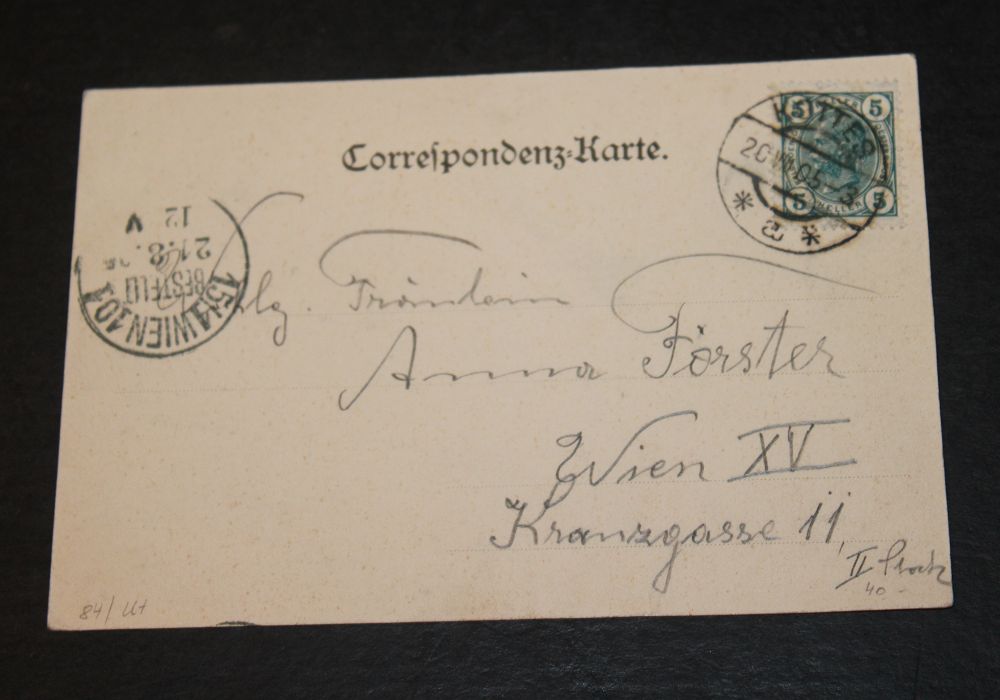 Correspondenz-Karte.
5 5
5 5
HELLER
20 VIII 05-3
* a *
15/1 WIEN 101
BESTELLT
21.8.
12
V
Fräulein
Anna Förster
Wien XV
Kranzgasse 11,
II Stock
40 -
84/